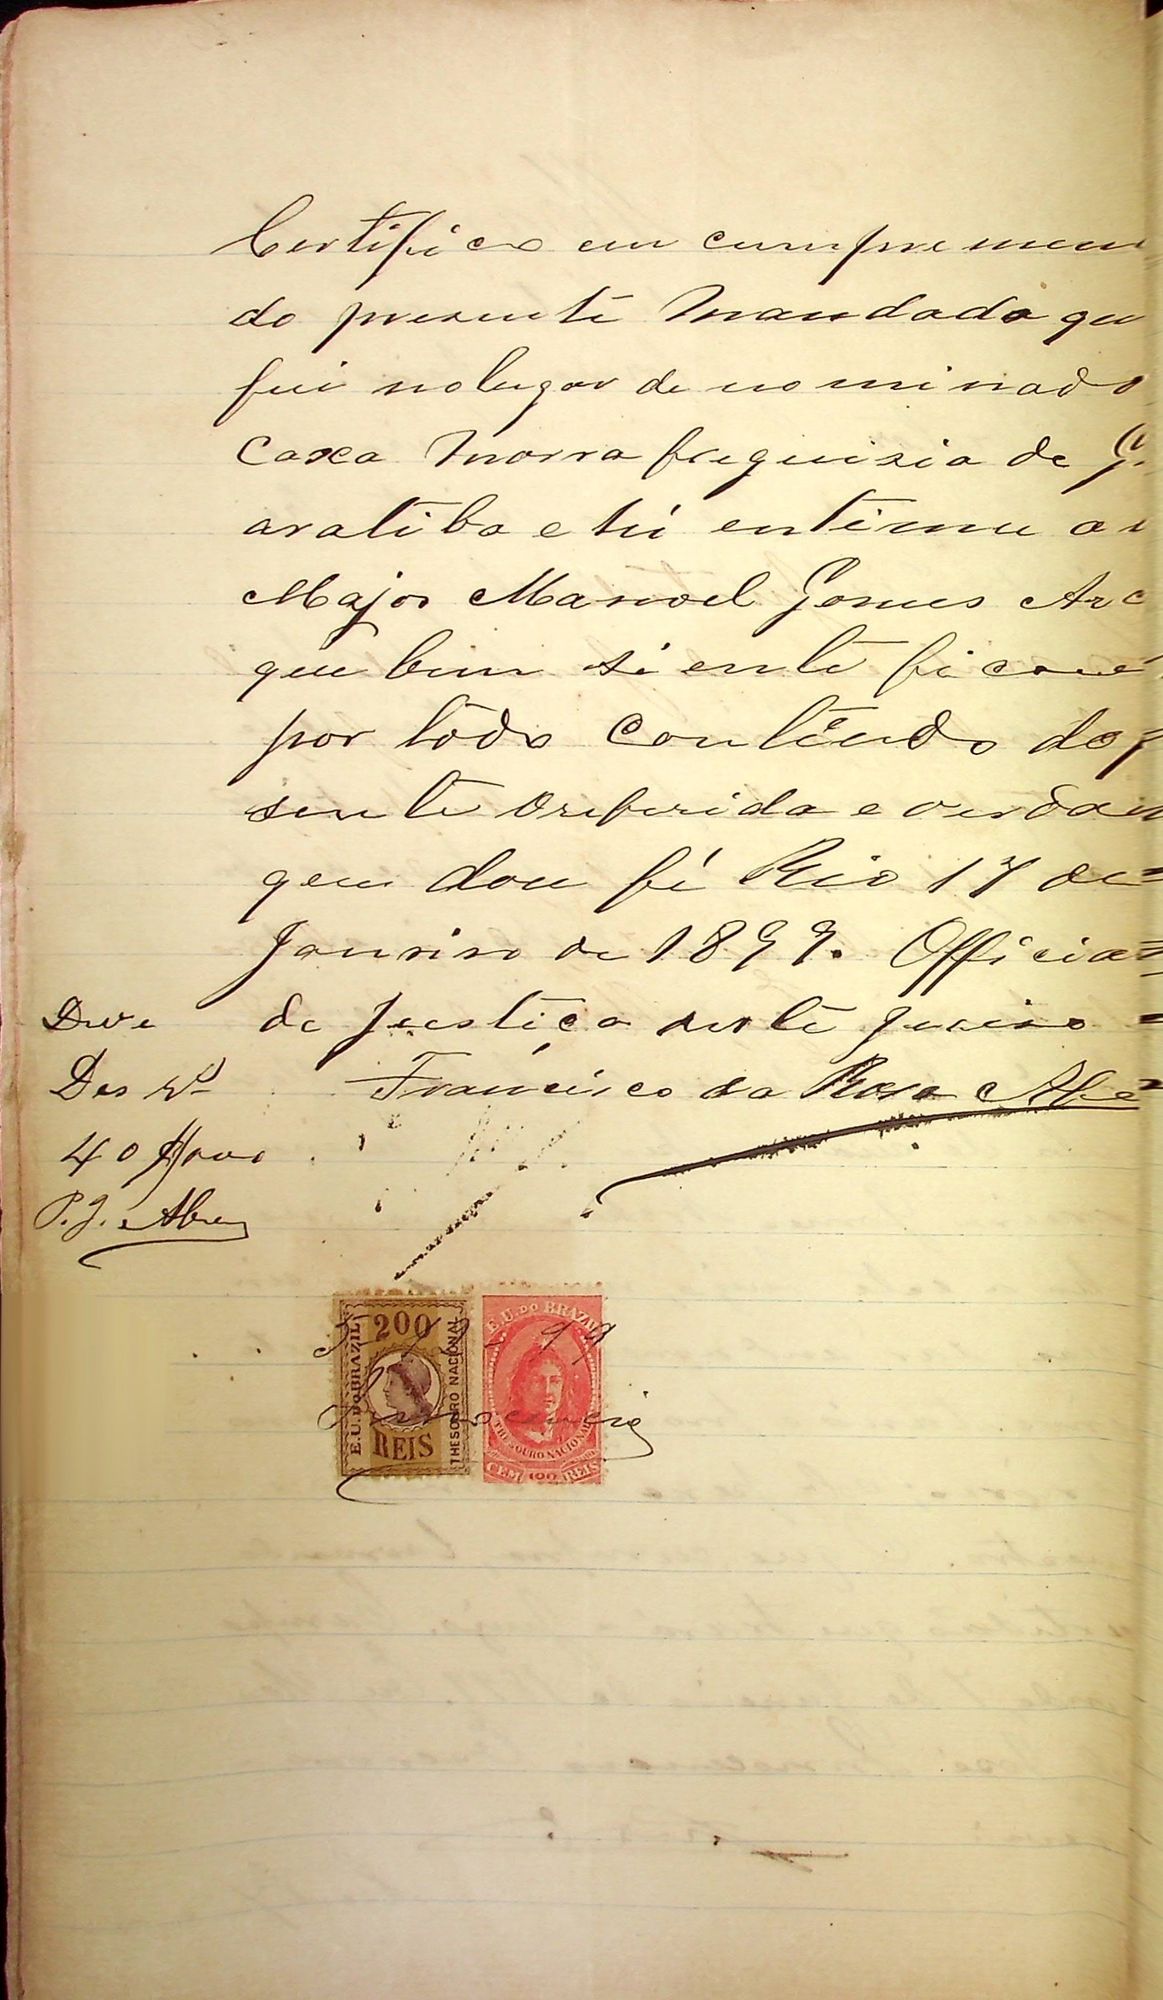 Certifico em cumpremen
do presente Mandado qu
fui no lugar denominado
Caxa Morra freguizia de G
aratiba e hi entimei ao
Major Manoel Gomes Arc
que bem siente ficou
por todo Contéudo do p
sente O referida e verda
gem dou fé Rio 17 de
Janeiro de 1899. Official
de Justiça neste Juizo
Francisco da Rosa Abr
Deve
40
P. J. Abreu
200
REIS
E.U. DO BRAZIL
THESOURO NACIONAL
E. U. DO BRAZIL
THESOURO NACIONAL
CEM 100 REIS
99